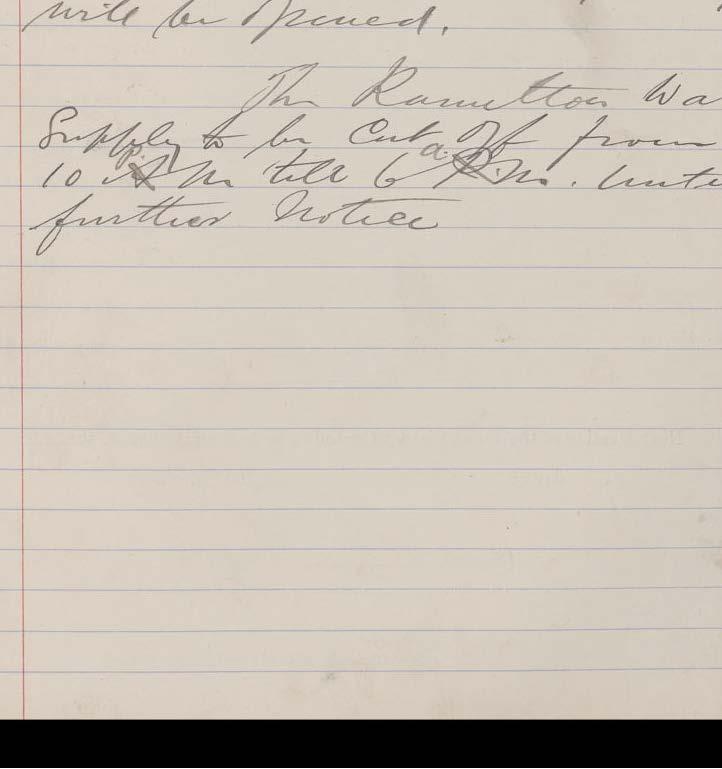 will be opened.
The Ramelton Wa
Supply to be Cut off from
10 P. M till 6 a. M. Unti
further Notice